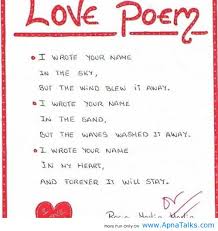 LOVE POEM
I WROTE YOUR NAME
IN THE SKY,
BUT THE WIND BLEW IT AWAY.
I WROTE YOUR NAME
IN THE SAND,
BUT THE WAVES WASHED IT AWAY.
I WROTE YOUR NAME
IN MY HEART,
AND FOREVER IT WILL STAY.
more fun only on www.ApnaTalks.com